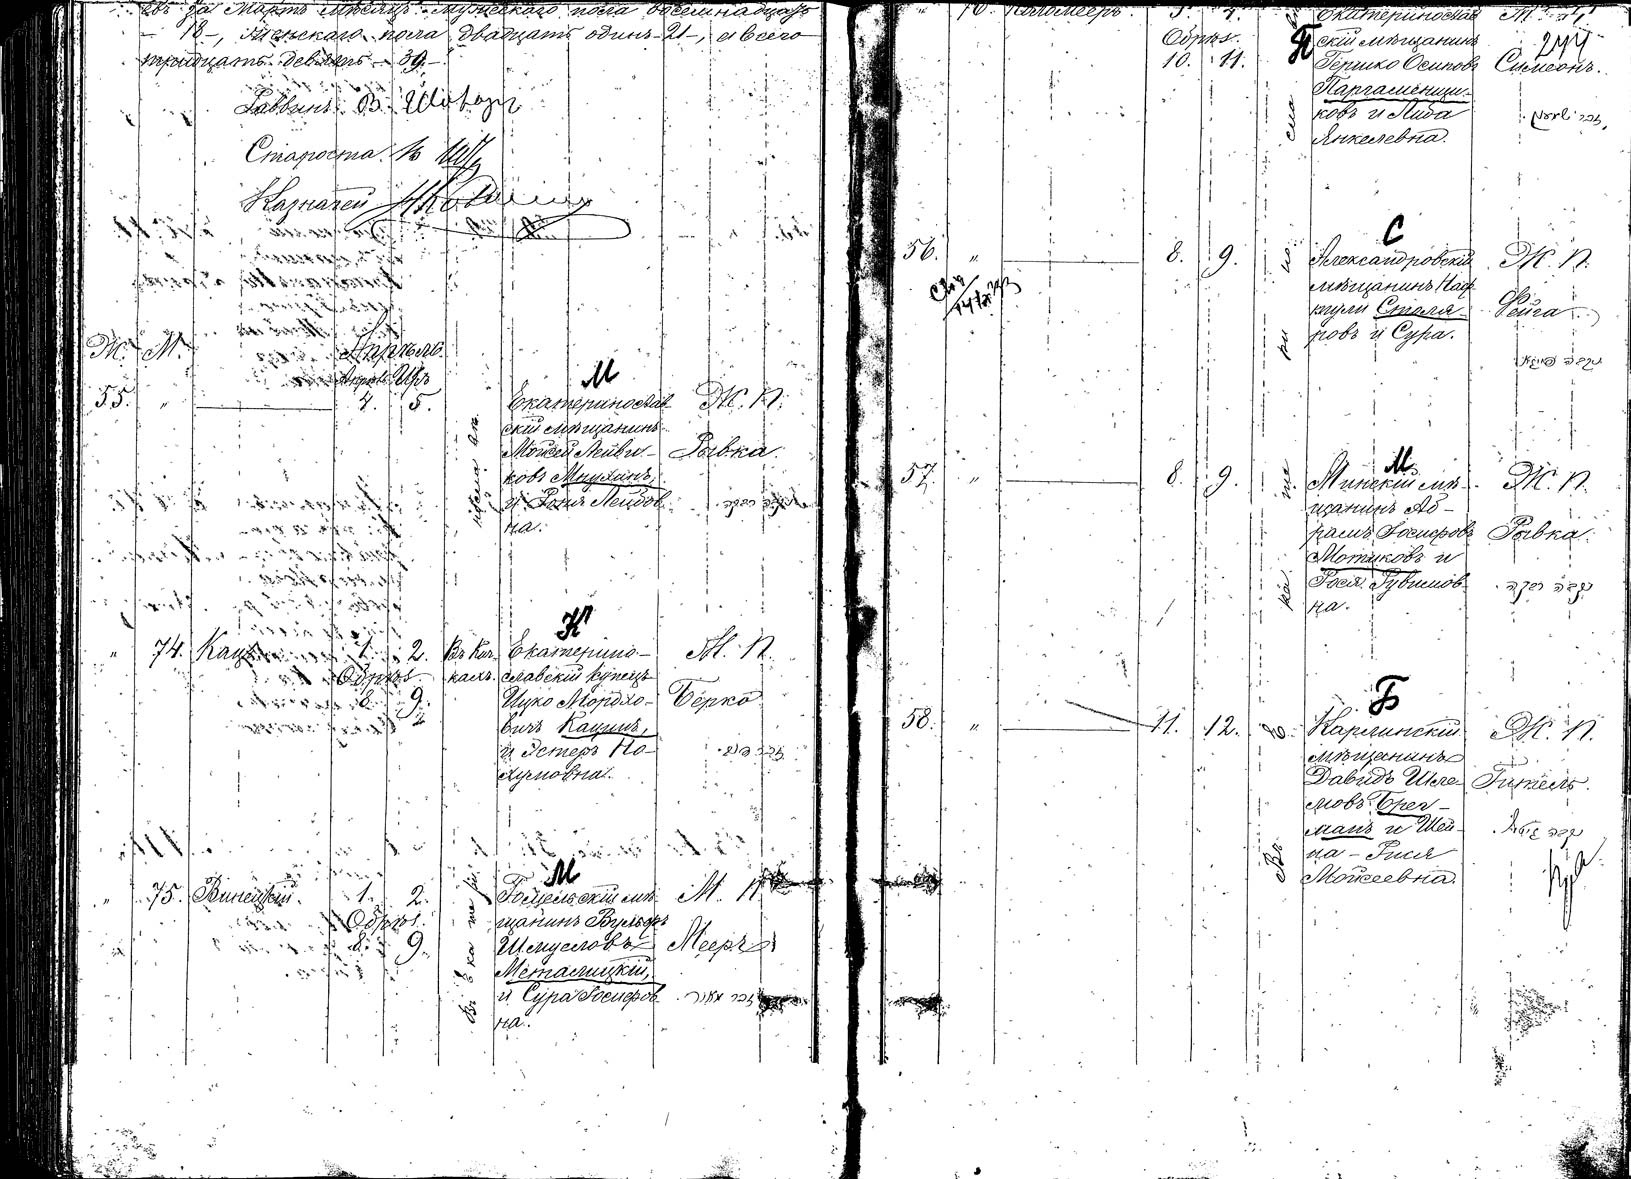 за Мартъ мѣсяцъ мужескаго пола восемнадцать
- 18 -, женскаго пола двадцать одинъ - 21 -, а всего
тридцать девять - 39 -
Раввинъ В. Шварц
Староста
Казначей
Ж. М. Апрѣль
55. " 4. 5.
М
Екатеринослав
скій мѣщанинъ
Мойсей Лейви-
ковъ Мнухинъ,
и Роня Лейбов
на.
Ж. П.
Рывка
נקבה רבקה
" 74. Кацъ 1. 2.
Обрѣз.
8. 9.
Въ Кач-
кахъ.
К
Екатерино-
славскій купецъ
Ицко Мордхо-
вичъ Кацинъ,
и Эстеръ Но-
хумовна.
М. П.
Берко
" 75. Винецкій. 1. 2.
Обрѣз.
8. 9.
М
Гомельскій мѣ-
щанинъ Вульфъ
Шмуеловъ
Металицкій,
и Сура Іосифов
на.
М. П.
Мееръ
זכר מאיר
Коломееръ. 3. 4.
Обрѣз.
10. 11.
П
Екатеринослав
скій мѣщанинъ
Гершко Осиповъ
Паргаменщи-
ковъ и Либа
Янкелевна.
М. П.
244
Симеонъ.
זכר שמעון
56. " 8. 9.
С
Александровскій
мѣщанинъ Наф
тули Столя-
ровъ и Сура.
Ж. П.
Фейга
נקבה פייגא
57. " 8. 9.
М
Минскій мѣ-
щанинъ Аб-
рамъ Іосифовъ
Мотиковъ и
Рося Рувимов
на.
Ж. П.
Рывка
נקבה רבקה
58. " 11. 12.
Б
Карлинскій
мѣщанинъ
Давидъ Шле-
мовъ Брег-
манъ и Шей-
на - Рися
Мойсеевна.
Ж. П.
Гитель.
נקבה גיטל